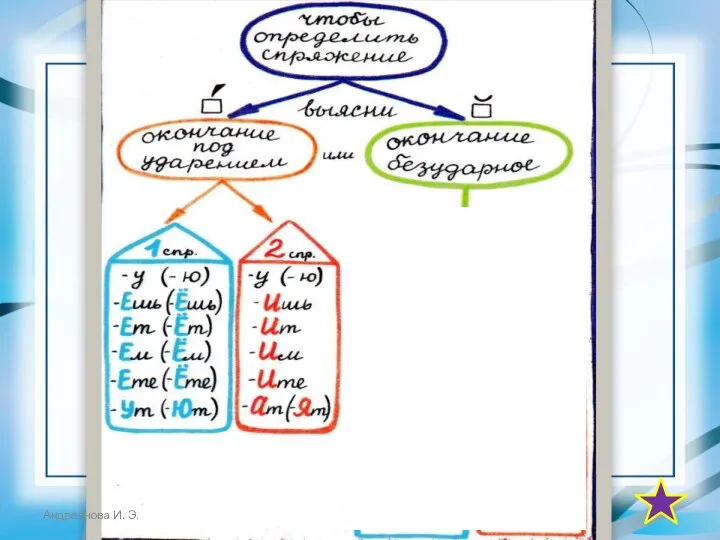 чтобы
определить
спряжение
выясни
окончание
под
ударением
или
окончание
безударное
1 спр.
-у (-ю)
-Ешь (-Ёшь)
-Ет (-Ёт)
-Ем (-Ём)
-Ете (-Ёте)
-Ут (-Ют)
2 спр.
-у (-ю)
-Ишь
-Ит
-Им
-Ите
-Ат (-Ят)
Андреянова И. Э.